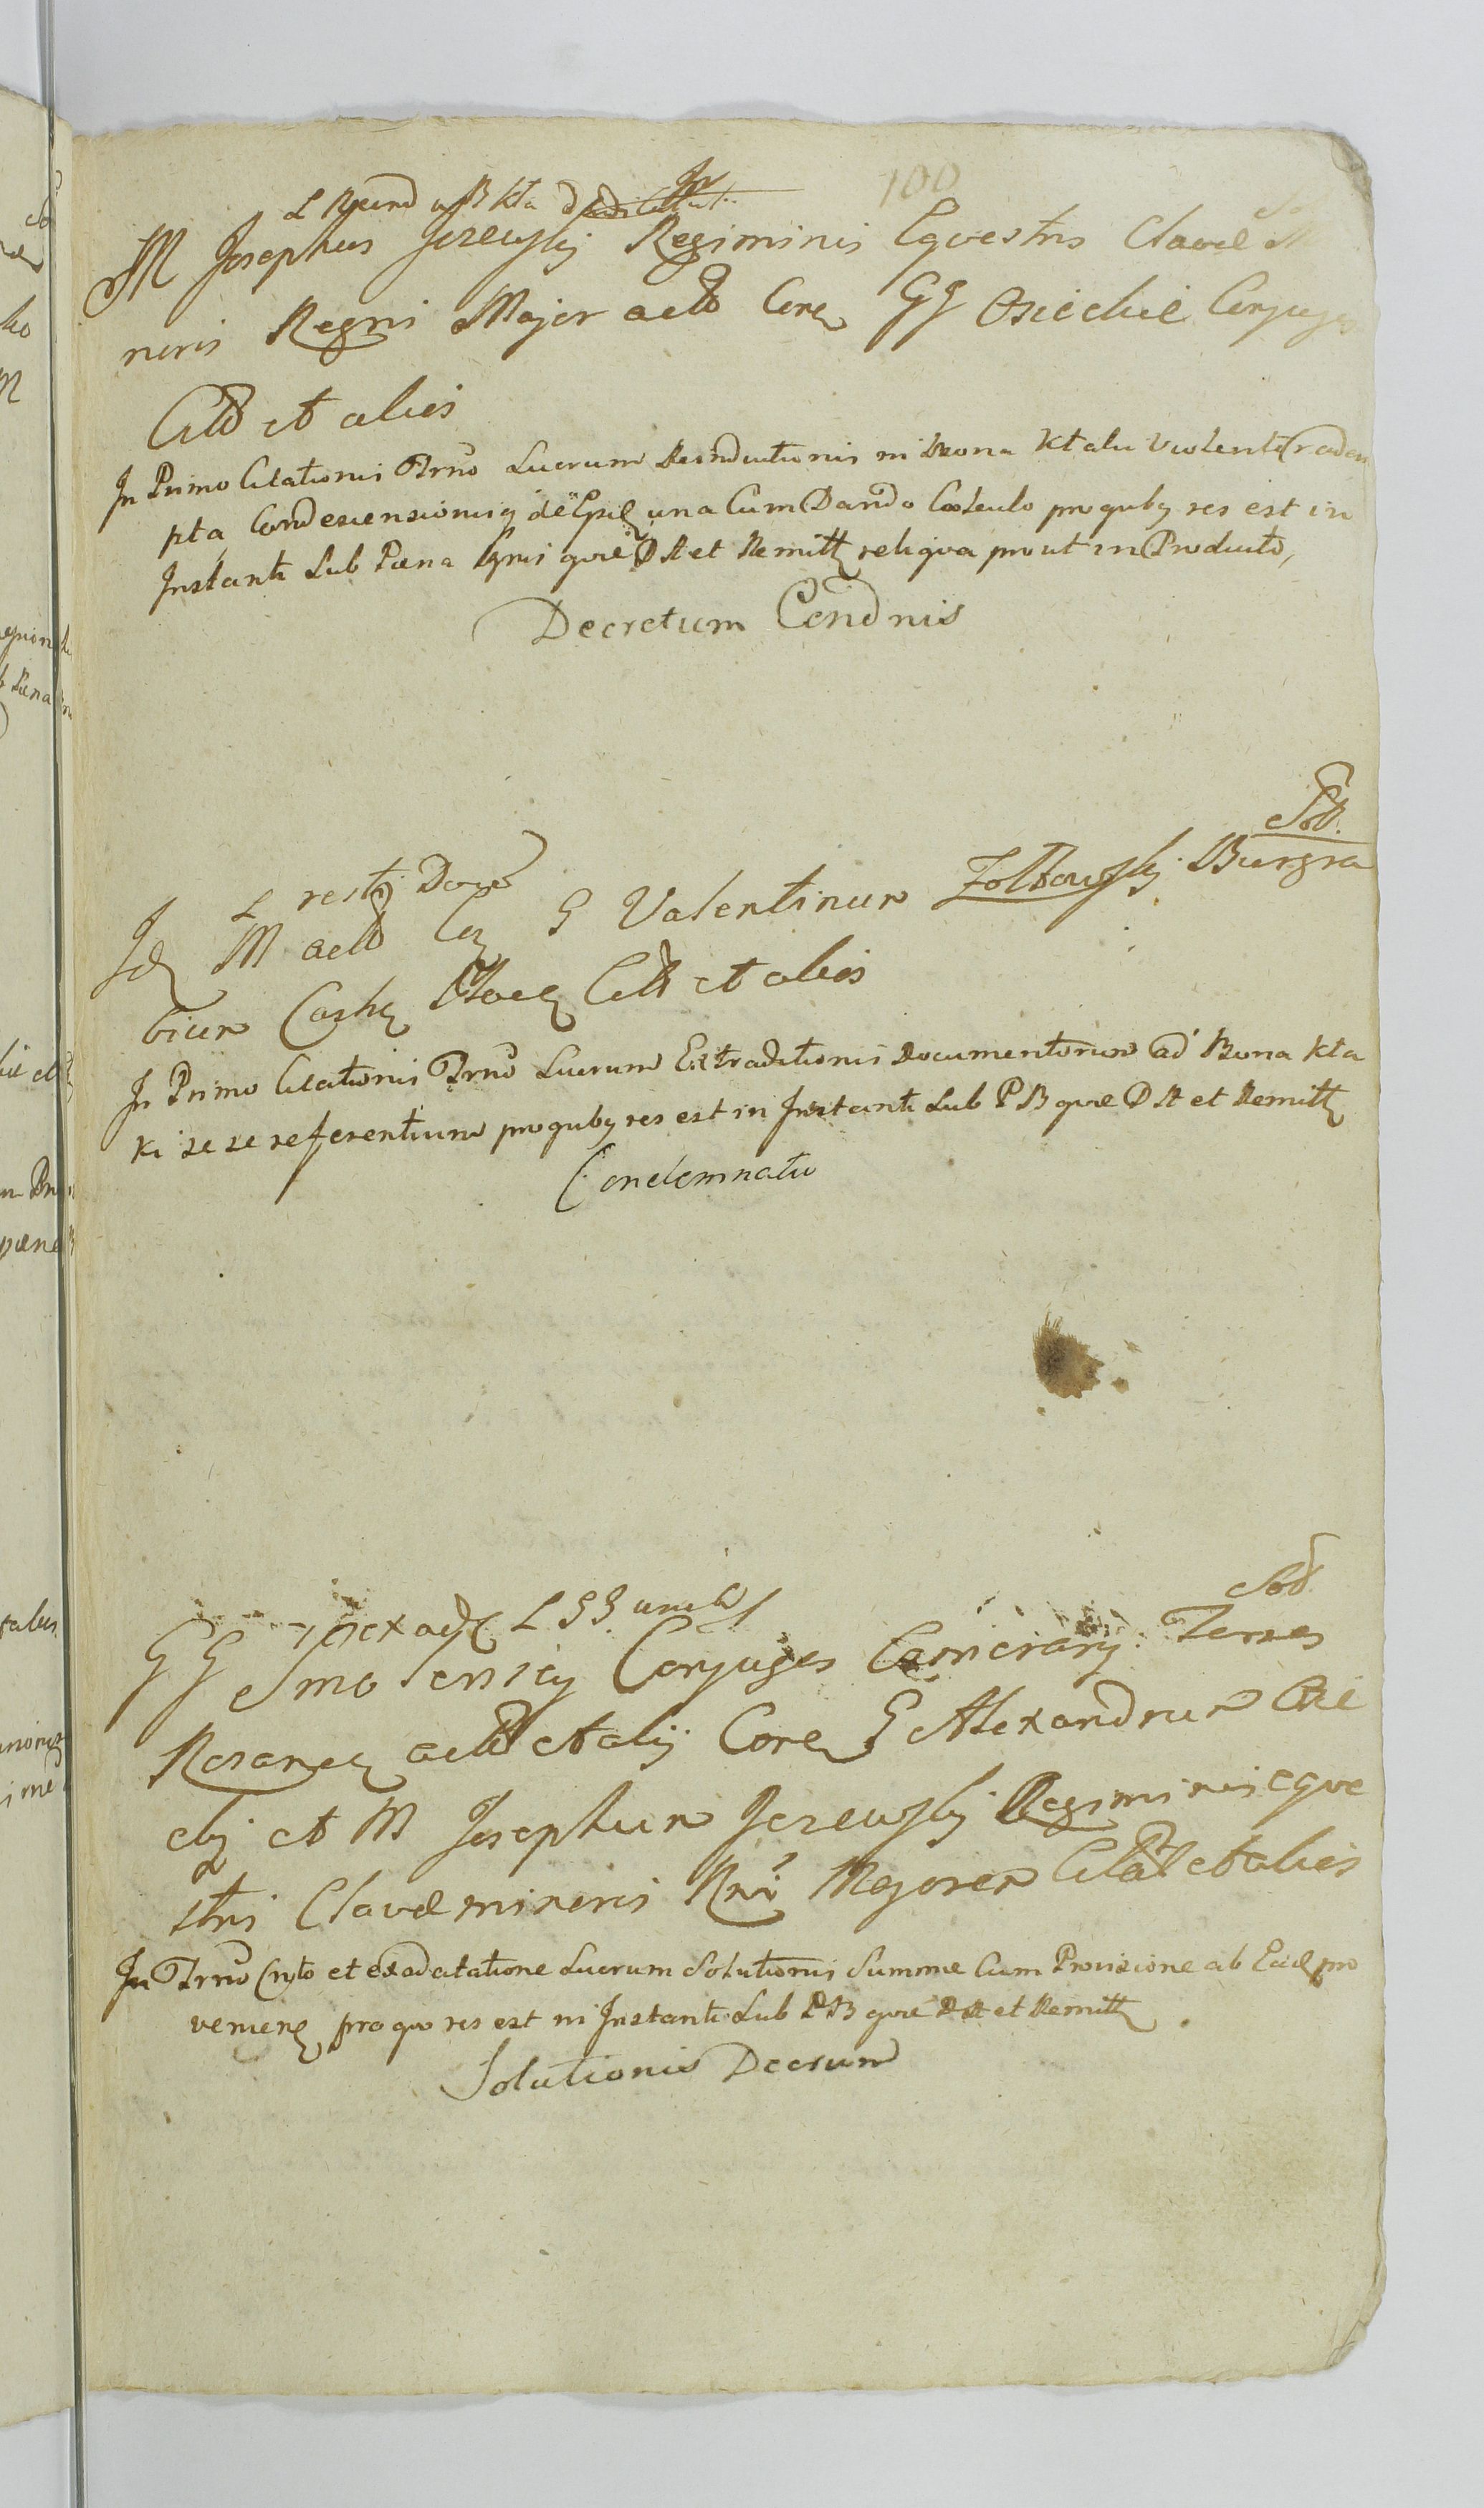 100
M Josephus Jezewskij Regiminis Eqvestris Clavæ Mi
noris Regni Major actt Cora GG Osieckie Conjuges
Citt et alios
In Primo Citationis Trno Lucrum Reinductionis in Bona Kłatu Violenter adem
pta Condescensionisq de Ipsis una Cum Dando Calculo pro quby res est in
Instanti Sub Pæna Bnis qvæ DA et Remitt reliqva prout in Producto,
Decretum Condnis
L restz Docū
Sod.
Id M actt Cor G Valentinum Zołtowskij Burgra
bium Castrē Płoceñ Citt et alios
In Primo Citationis Trno Lucrum Extraditionis Documentorum ad Bona Kła
ki se se referentium pro quby res est in Instanti Sub PB qvæ DA et Remitt
Condemnatio
Sod.
GG Smolenscij Conjuges Camerarij Terræ
Rozaneñ actt et alij Cora G Alexandrum Osie
ckij et M Josephum Jezewskij Regiminis eqve
stri Clavæ minoris Rni Majorem Citatt et alios
In Trno Cnto et ex adcitatione Lucrum Solutionis Summæ Cum Provisione ab Ead pro
venieñ pro qvo res est in Instanti Sub PB qvæ DA et Remitt
Solutionis Decrum